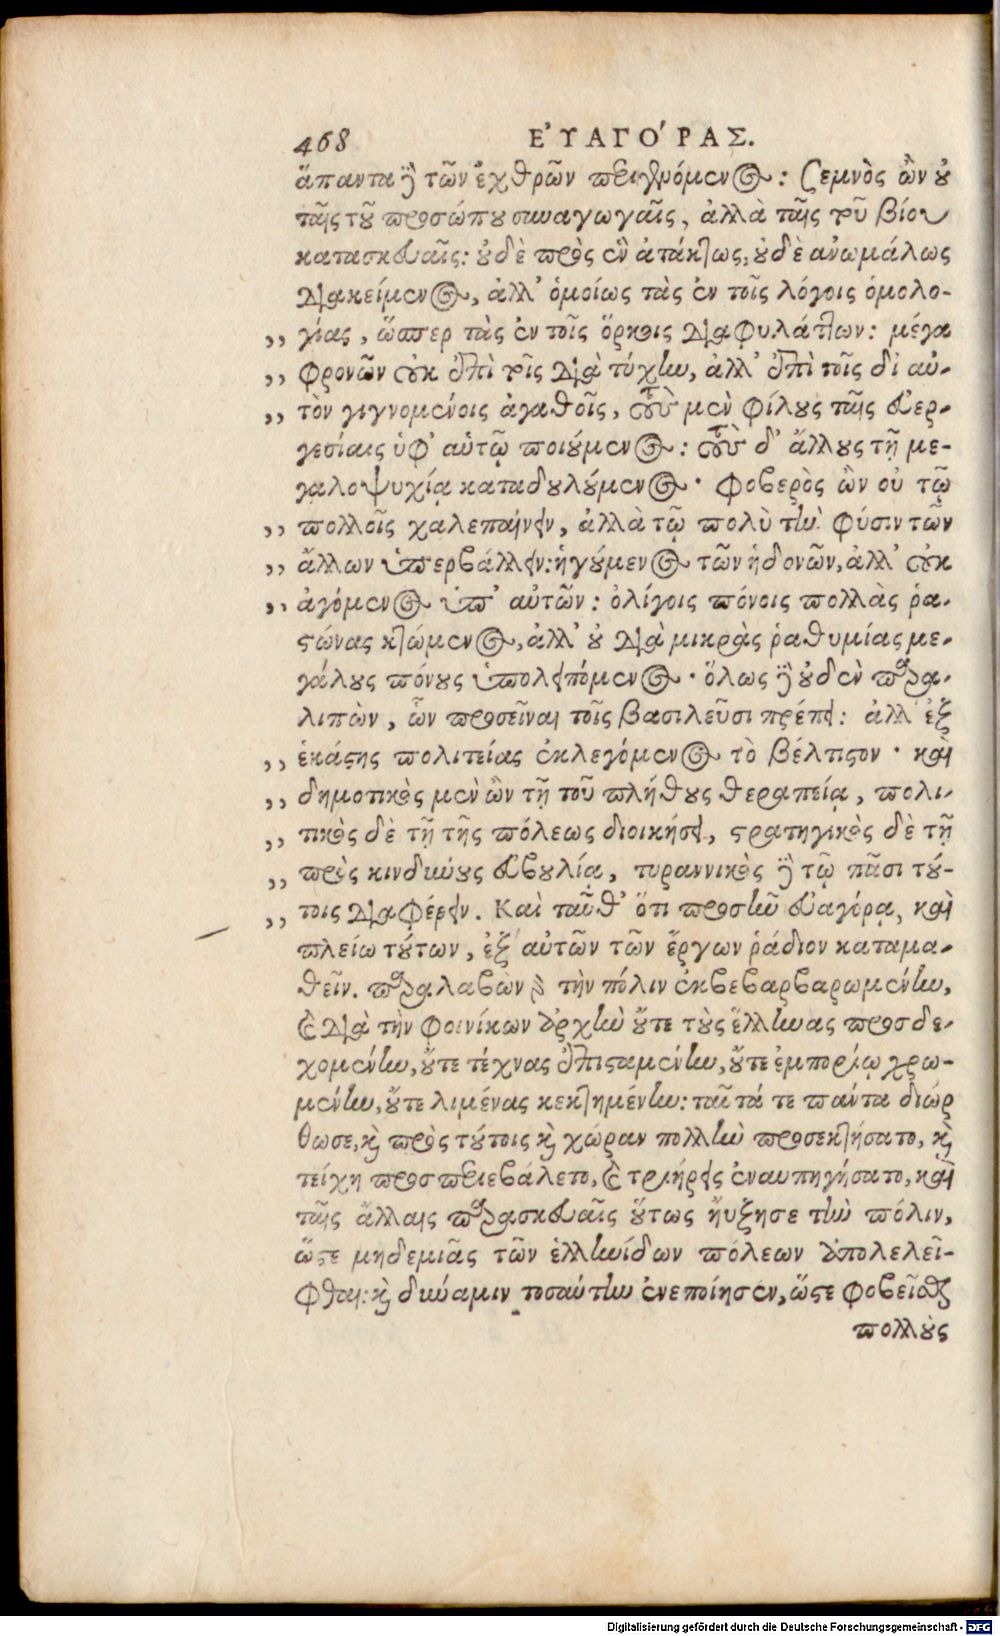 468 ΕΥ̓ΑΓΟ΄ΡΑΣ.
ἅπαντα δὲ τῶν ἐχθρῶν περιγιγνόμενος: σεμνὸς ὢν οὐ
ταῖς τοῦ προσώπου συναγωγαῖς, ἀλλὰ ταῖς τοῦ βίου
κατασκευαῖς: οὐδὲ πρὸς ἓν ἀτάκτως, οὐδὲ ἀνωμάλως
διακείμενος, ἀλλ' ὁμοίως τὰς ἐν τοῖς λόγοις ὁμολο-
,, γίας, ὥσπερ τὰς ἐν τοῖς ὅρκοις διαφυλάττων: μέγα
,, φρονῶν οὐκ ἐπὶ τοῖς διὰ τύχην, ἀλλ' ἐπὶ τοῖς δι' αὑ-
,, τὸν γιγνομένοις ἀγαθοῖς, τοὺς μὲν φίλους ταῖς εὐερ-
γεσίαις ὑφ' αὑτῷ ποιούμενος: τοὺς δ' ἄλλους τῇ με-
γαλοψυχίᾳ καταδουλούμενος· φοβερὸς ὢν οὐ τῷ
,, πολλοῖς χαλεπαίνειν, ἀλλὰ τῷ πολὺ τὴν φύσιν τῶν
,, ἄλλων ὑπερβάλλειν: ἡγούμενος τῶν ἡδονῶν, ἀλλ' οὐκ
,, ἀγόμενος ὑπ' αὐτῶν: ὀλίγοις πόνοις πολλὰς ῥα-
στώνας κτώμενος, ἀλλ' οὐ διὰ μικρὰς ῥαθυμίας με-
γάλους πόνους ὑπολειπόμενος· ὅλως δὲ οὐδὲν παρα-
λιπὼν, ὧν προσεῖναι τοῖς βασιλεῦσι πρέπει: ἀλλ' ἐξ
,, ἑκάστης πολιτείας ἐκλεγόμενος τὸ βέλτιστον· καὶ
,, δημοτικὸς μὲν ὢν τῇ τοῦ πλήθους θεραπείᾳ, πολι-
,, τικὸς δὲ τῇ τῆς πόλεως διοικήσει, στρατηγικὸς δὲ τῇ
,, πρὸς κινδύνους εὐβουλίᾳ, τυραννικὸς δὲ τῷ πᾶσι τού-
,, τοις διαφέρειν. Καὶ ταῦθ' ὅτι προσῆν εὐαγόρᾳ, καὶ
πλείω τούτων, ἐξ αὐτῶν τῶν ἔργων ῥάδιον καταμα-
θεῖν. παραλαβὼν γὰρ τὴν πόλιν ἐκβεβαρβαρωμένην,
καὶ διὰ τὴν φοινίκων ἀρχὴν οὔτε τοὺς ἕλληνας προσδε-
χομένην, οὔτε τέχνας ἐπισταμένην, οὔτε ἐμπορίῳ χρω-
μένην, οὔτε λιμένας κεκτημένην: ταῦτά τε πάντα διώρ
θωσε, καὶ πρὸς τούτοις καὶ χώραν πολλὴν προσεκτήσατο, καὶ
τείχη προσπεριεβάλετο, καὶ τριήρεις ἐναυπηγήσατο, καὶ
ταῖς ἄλλαις παρασκευαῖς οὕτως ηὔξησε τὴν πόλιν,
ὥστε μηδεμιᾶς τῶν ἑλληνίδων πόλεων ἀπολελεῖ-
φθαι: καὶ δύναμιν τοσαύτην ἐνεποίησεν, ὥστε φοβεῖσθαι
πολλοὺς
Digitalisierung gefördert durch die Deutsche Forschungsgemeinschaft - DFG